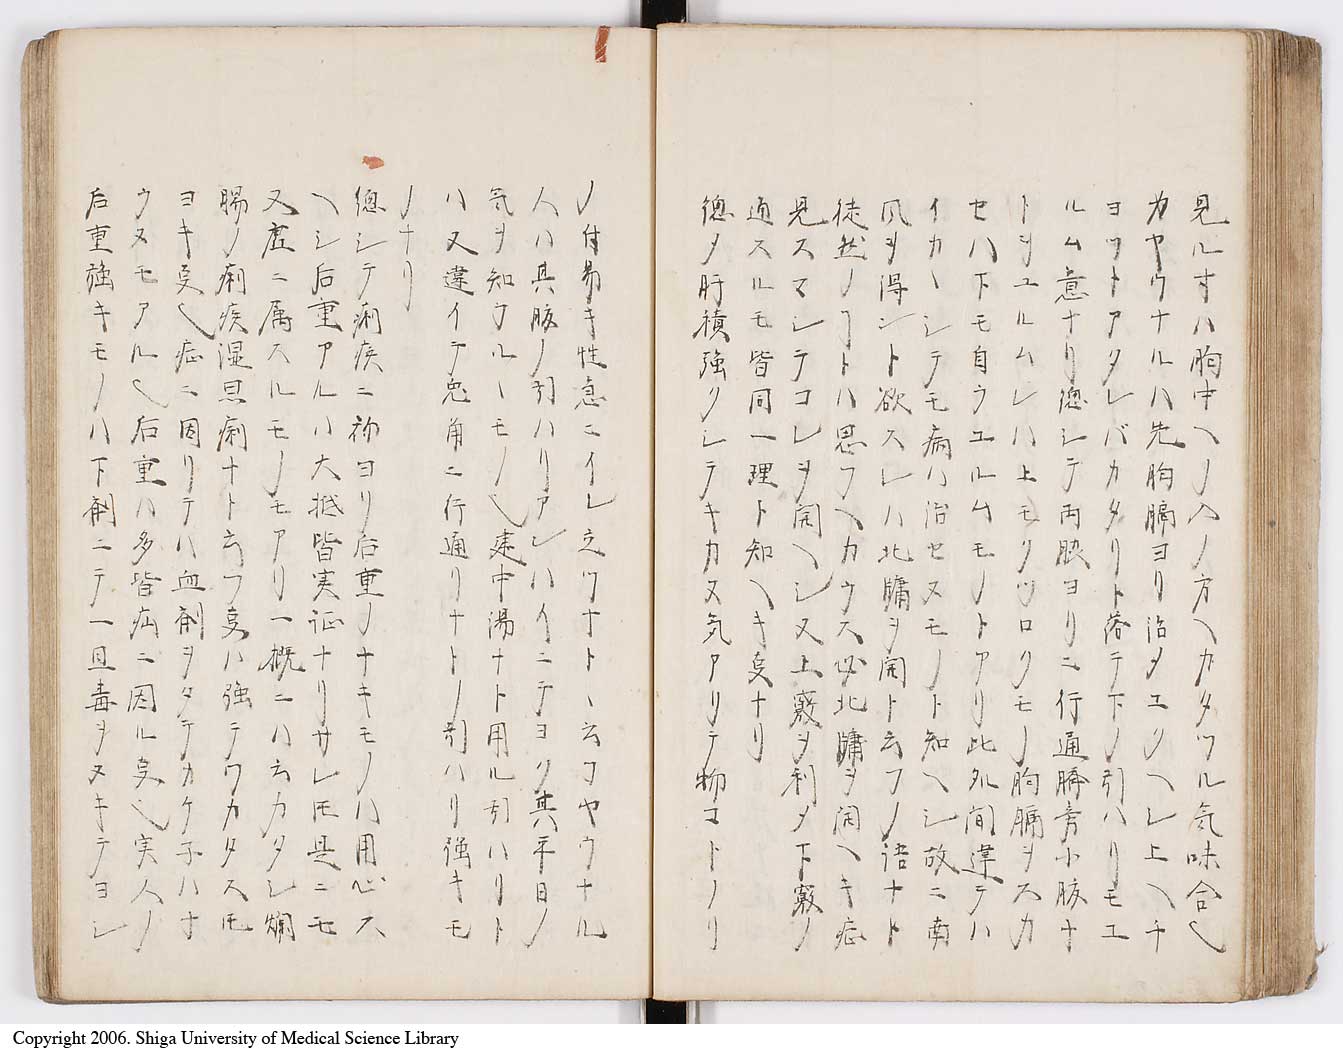 見ルサハ胸中ヘノハノ方ヘカタツル気味合也
カヤウナルハ先胸膈ヨリ治メユクヘシ上ヘチ
ヨツトアタレバカタリト落テ下ノ引ハリモユ
ルム意ナリ總シテ両脇ヨリ二行通臍旁小腹ナ
トヲユルムレハ上モクツロクモノ胸膈ヲスカ
セハ下モ自ウユルムモノトアリ此処間違テハ
イカヽシテモ病ハ治セヌモノト知ヘシ故ニ南
風ヲ得ント欲スレハ北牖ヲ開ト云フノ語ナト
徒然ノヿトハ思フヘカラス必北牖ヲ開ヘキ症
見スマシテコレヲ開ヘシ又上竅ヲ利メ下竅ノ
通スルモ皆同一理ト知ヘキ叓ナリ
總タ肝積強クシテキカヌ気アリテ物コトノリ
ノ付易キ性急ニイレ立ツナトヽ云フヤウナル
人ハ其腹ノ引ハリアレハイニテヨク其平日ノ
気ヲ知ラルヽモノ也建中湯ナト用ル引ハリト
ハ又違イテ兎角二行通リナトノ引ハリ強キモ
ノナリ
總シテ痢疾ニ初ヨリ后重ノナキモノハ用心ス
ヘシ后重アルハ大抵皆実証ナリサレ𪜈是ニモ
又虚ニ属スルモノモアリ一概ニハ云カタシ爛
腸ノ痢疾湿毒痢ナト云フ叓ハ強テワカタス𪜈
ヨキ叓也症ニ因リテハ血剤ヲタテカケ子ハナ
ラヌモアル也后重ハ多皆疝ニ因ル叓也実人ノ
后重強キモノハ下剤ニテ一旦毒ヲヌキテヨシ
Copyright 2006. Shiga University of Medical Science Library